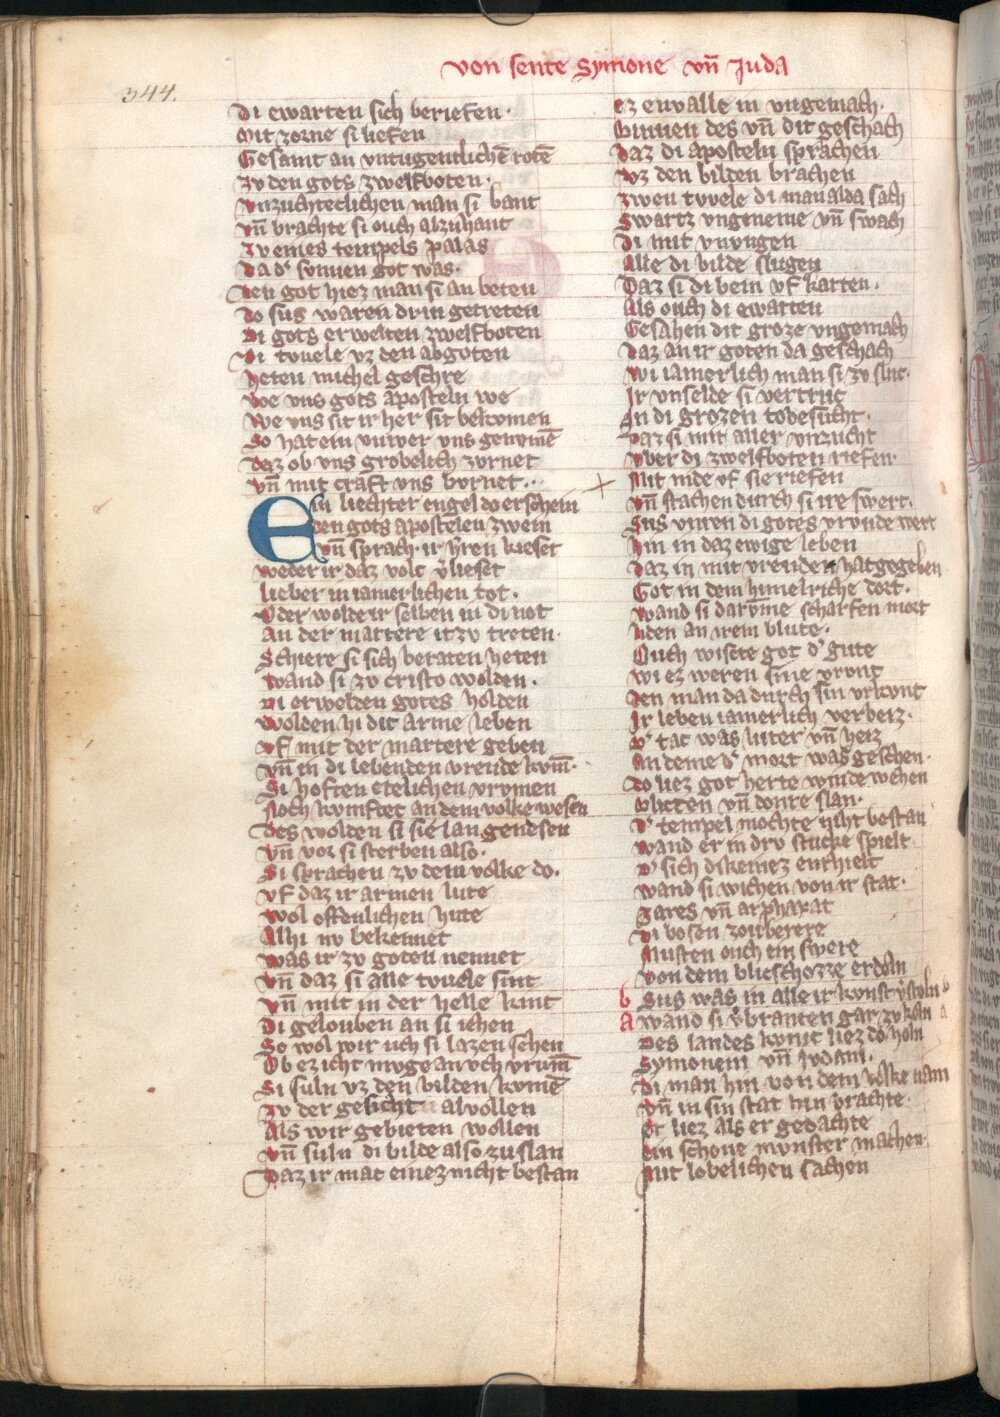 von sente Symone vn̄ Juda
344.
Di ewarten sich beriefen.
Mit zorne si liefen
Gesamt an vntugentlichē rotē
Zv den gots zwelfboten.
Vnzuchteclichen man si bant
Vn̄ brachte si ouch alzuhant
Zv eines tempels palas
Da d' sonnen got was.
Den got hiez man si an beten
Do sus waren drin getreten
Di gots erwelten zwelfboten
Di tovele vz den abgoten
Heten michel geschre
We vns gots aposteln we
We vns sit ir her sit bekomen
So hat ein vuwer vns genvmē
Daz ob vns grobelich zornet
Vn̄ mit craft vns bornet.
Ein liechter engel do erschein
Den gots apostelen zwein
Vn̄ sprach. ir h'ren kieset
Weder ir daz volc v'lieset
Lieber in iamerlichen tot.
Oder wolde ir selben in di not
An der martere itzv treten.
Schiere si sich beraten heten
Wand si zv cristo wolden.
Di erwelden gotes holden
Wolden hi dit arme leben
Vf mit der martere geben
Vn̄ in di lebenden vreude kvm̄.
Si hoften etelichen vrvmen
Noch kvmftec an dem volke wesen
Des wolden si sie lan genesen
Vn̄ vor si sterben also.
Si sprachen zv dem volke do.
Vf daz ir armen lute
Wol offenlichen hute
Alhi nv bekennet
Was ir zv goten nennet
Vn̄ daz si alle tovele sint
Vn̄ mit in der helle kint
Di gelouben an si iehen
So wol wir uch si lazen sehen
Ob ez icht mvge an vch vrum̄
Si suln vz den bilden kvmē
Zv der gesicht alvollen
Als wir gebieten wollen
Vn̄ suln di bilde also zuslan
Daz ir mac einez nicht bestan
Ez envalle in vngemach.
Binnen des vn̄ dit geschach
Daz di aposteln sprachen
Vz den bilden brachen
Zwen tovele di man alda sach
Swartz vngeneme vn̄ swach
Di mit vnvugen
Alle di bilde slugen
Daz si di bein vf karten.
Als ouch di ewarten
Gesahen dit groze vngemach
Daz an ir goten da geschach
Wi iamerlich man si zv sluc.
Ir vnselde si vertruc
In di grozen tobesucht.
Daz si mit aller vnzucht
Vber di zwelfboten riefen
Mit nide vf sie riefen
Vn̄ stachen durch si ire swert.
Sus vuren di gotes vrvnde wert
Hin in daz ewige leben
Daz in mit vreuden hat gegeben
Got in dem himelriche dort.
Wand si darvmme scharfen mort
Liden an irem blute.
Ouch wiste got d' gute
Wi ez weren sine vrunt
Den man da durch sin vrkvnt
Ir leben iamerlich verbeiz.
D' tac was luter vn̄ heiz
An deme d' mort was geschen.
Do liez got herte winde wehen
Blicken vn̄ donre slan.
D' tempel mochte nicht bestan
Wand er in drv stucke spielt
D' sich dikeinez enthielt
Wand si wichen von ir stat.
Zares vn̄ arphaxat
Di bosen zouberere
Musten ouch ein swere
Von dem blicschozze erdoln
b Sus was in alle ir kvnst v'stoln b
a Wand si v'branten gar zv koln a
Des landes kvnic liez do holn
Symonem vn̄ Judam.
Di man hin von dem volke nam
Vn̄ in sin stat hin brachte.
Er liez als er gedachte
Ein schone mvnster machen.
Mit lobelichen sachen